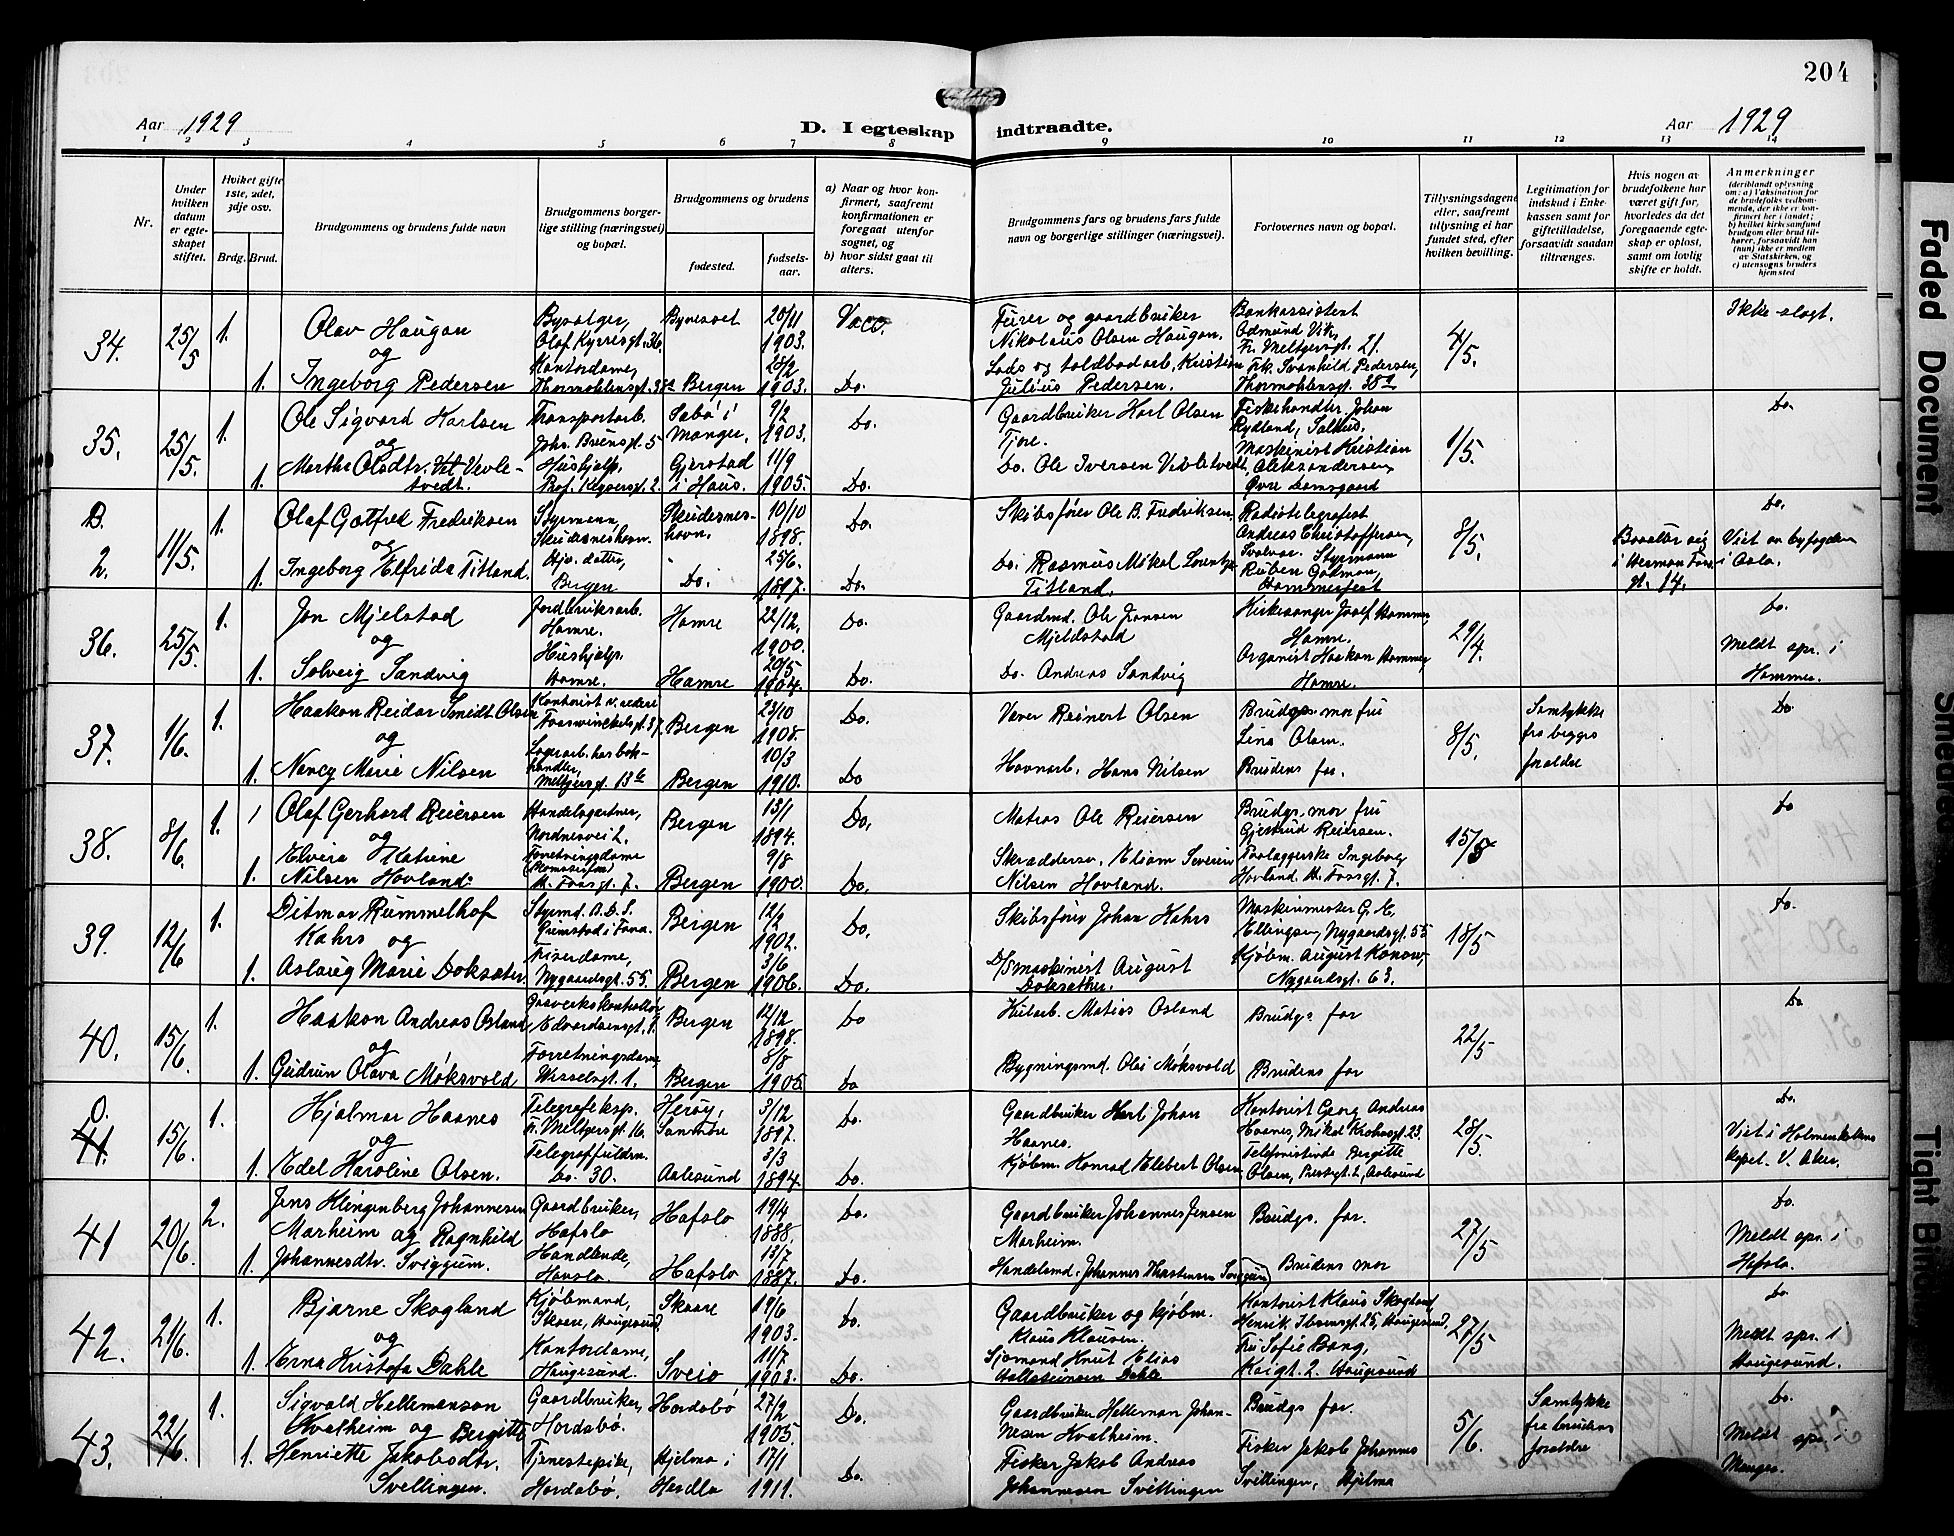 204
Aar 1929
D. I egteskap indtraadte.
Aar 1929
1 2 3 4 5 6 7 8 9 10 11 12 13 14
Nr.
Under hvilken datum er egteskapet stiftet.
Hvilket gifte 1ste, 2det, 3dje osv.
Brdg. Brud.
Brudgommens og brudens fulde navn
Brudgommens borgerlige stilling (næringsvei) og bopæl.
Brudgommens og brudens
fødested.
fødselsaar.
a) Naar og hvor konfirmert, saafremt konfirmationen er foregaat utenfor sognet, og
b) hvor sidst gaat til alters.
Brudgommens fars og brudens fars fulde navn og borgerlige stillinger (næringsvei).
Forlovernes navn og bopæl.
Tillysningsdagene eller, saafremt tillysning ei har fundet sted, efter hvilken bevilling.
Legitimation for indskud i Enkekassen samt for giftetilladelse, forsaavidt saadan tiltrænges.
Hvis nogen av brudefolkene har været gift før, hvorledes da det foregaaende egteskap er opløst, samt om lovlig skifte er holdt.
Anmerkninger
(deriblandt oplysning om: a) Vaksination for de brudefolks vedkommende, der ikke er konfirmert her i landet; b) hvilket kirkesamfund brudgom eller brud tilhører, forsaavidt han (hun) ikke er medlem av Statskirken, og c) utensogns bruders hjemsted
34. 25/5 1. Olav Haugan
og
1. Ingeborg Pedersen
Olaf Kyrresgt. 36.
Kontordame,
Bynesset 20/11 1903.
Bergen 28/2 1903. Do.
Furer og gaardbruker
Nikolaus Olsen Haugan.
Julius Pedersen.
Bankassistent
Odmund Vik,
Fr. Meltzersgt. 21.
Frk. Svanhild Pedersen,
4/5.
Ikke slegt.
35. 25/5. 1. Ole Sigvard Karlsen
og
1.
Transportarb.
Johs. Brunsgt. 5
Hushjelp,
Sæbø i
Manger. 9/2 1903. Do.
Gjerstad
i Haus. 11/9 1905. Do.
Gaardbruker Karl Olsen
Tjore.
Do. Ole Iversen
Fiskehandler Johan
Rydland, Salhus.
Maskinist Kristian
Aleksandersen,
Øvre Damsgaard
1/5.
Do.
D.
2. 11/5. 1. Olaf Gotfred Fredriksen
og
1. Ingeborg Elfrida Titland.
Styrmann,
Skudesneshavn.
Hjv. datter,
Bergen
Skudesneshavn. 10/10 1898. Do.
Do. 25/6. 1897. Do.
Skibsfører Ole B. Fredriksen.
Do. Rasmus Mikal Lorentz
Titland.
Radiotelegrafist
Andreas Christoffersen,
Svolvær. Styrmann
Ruben Godmon,
Hammerfest
8/5.
Bosætter sig
i Herman Fossgt. 14.
Do.
Viet av byfogden
i Oslo.
36. 25/5. 1. Jon Mjelstad
og
1. Solveig Sandvig
Jordbruksarb.
Hamre.
Hushjelp.
Hamre.
Hamre 22/12. 1900. Do.
Hamre 20/5 1904. Do.
Gaardmd. Ole Jonsen
Mjeldstad
Do. Andreas Sandvig
Kirkesanger Josef Hammer
Hamre.
Organist Haakon Hammer
Hamre.
29/4.
Do.
Meldt spr. i
Hammer.
37. 1/6. 1. Haakon Reidar Smidt Olsen
og
1. Nancy Marie Nilsen
Kontorist v. rederi
Lagerarb. hos bokhandler,
Meltzersgt. 13b
Bergen 23/10 1908. Do.
Bergen 10/3 1910. Do
Væver Reinert Olsen
Havnarb. Hans Nilsen
Brudgs. mor fru
Lina Olsen.
Brudens far.
8/5.
Samtykke
fra begges
foreldre
Do.
38. 8/6 1. Olaf Gerhard Reiersen
og
Elvira Katrine
1. Nilsen Hovland.
Handelsgartner,
Nordnesvei 2.
Forretningsdame
H. Fossgt. 7.
Bergen 13/1 1894. Do.
Bergen 9/8 1900. Do.
Matros Ole Reiersen
Skræddersv. Eliam Severin
Nilsen Hovland.
Brudgs. mor fru
Gjertrud Reiersen.
Ingeborg
Hovland. H. Fossgt. 7.
15/5
Do
39. 12/6 1. Ditmar Rummelhof
Kahrs og
1. Aslaug Marie Doksæter.
Styrmd. B.D.S.
Grimstad i Fana.
Frisørdame,
Nygaardsgt. 55.
Bergen 12/2 1902. Do.
Bergen 3/6 1906. Do.
Skibsfører Johan Kahrs
D/Smaskinist August
Doksæther.
Maskinmester G. E.
Ellingsen, Nygaardsgt. 55
Kjøbm. August Konow,
Nygaardsgt. 63.
18/5
Do.
40. 15/6 1. Haakon Andreas Osland
og
1. Gudrun Olava Møksvold
Gasverkskontrollør,
Edvardsensgt. 1.
Forretningsdame,
Wesselsgt. 1.
Bergen 12/12 1898. Do
Bergen 8/8 1905. Do
Kularb. Matias Osland
Bygningsmd. Olai Møksvold
Brudgs far
Brudens far
22/5
Do.
D.
41. 15/6. 1. Hjalmar Haanes
og
1. Edel Karoline Olsen.
Telegrafeksp.
Fr. Meltzersgt. 16.
Telegraffuldm.
Do. 30.
Herøy,
Sunmøre 3/12 1897. Do.
Aalesund 3/3 1894. Do.
Gaardbruker Karl Johan
Haanes.
Kjøbm. Konrad Elebert Olsen
Kontorist Georg Andreas
Haanes, Mikal Krohnsgt 23.
Telefonistinde Bergitte
Olsen, Aalesund
28/5.
Do.
Viet i Holmenkollens
kapel. V. Aker.
41 20/6. 2. Jens Klingenberg Johannesen
Marheim og Ragnhild
1. Johannesdtr. Sviggum.
Gaardbruker,
Hafslo
Handlende,
Hafslo.
Hafslo 19/4 1888. Do.
Hafslo 13/7 1887. Do.
Gaardbruker Johannes Jensen
Marheim.
Handelsmd. Johannes Thorstensen Sviggum
Brudgs. far.
Brudens mor
27/5
Do.
Meldt spr. i
Hafslo.
42. 21/6. 1. Bjarne Skogland
og
1. Erna Kristofa Dahle
Kjøbmand,
Skaare, Haugesund.
Kontordame,
Haugesund.
Skaare 19/6 1903. Do.
Sveio 11/7 1903. Do.
Gaardbruker og kjøbm.
Klaus Klausen.
Sjømand Knut Elias
Dahle
Kontorist Klaus Skogland,
Henrik Ibsensgt. 25, Haugesund.
Fru Sofie Bang,
Kaigt. 2. Haugesund
27/5
Do.
Meldt spr. i
Haugesund.
43. 22/6. 1. Sigvald Hellemansen
Kvalheim og Bergitte
1. Henriette Jakobsdtr.
Svellingen.
Gaardbruker,
Hordabø.
Tjenestepike,
Hordabø.
Hordabø 27/2 1905. Do.
Hjelma i
Herdla 17/1 1911. Do.
Gaardbruker Helleman Johannesen Kvalheim.
Fisker Jakob Andreas
Johannesen Svellingen
Brudgs far.
Fisker Jakob Johannes
Svellingen, Hjelma
5/6.
Samtykke
fra brudens
foreldre
Do.
Meldt spr. i
Manger.
Faded Document
Smeared
Tight Bind